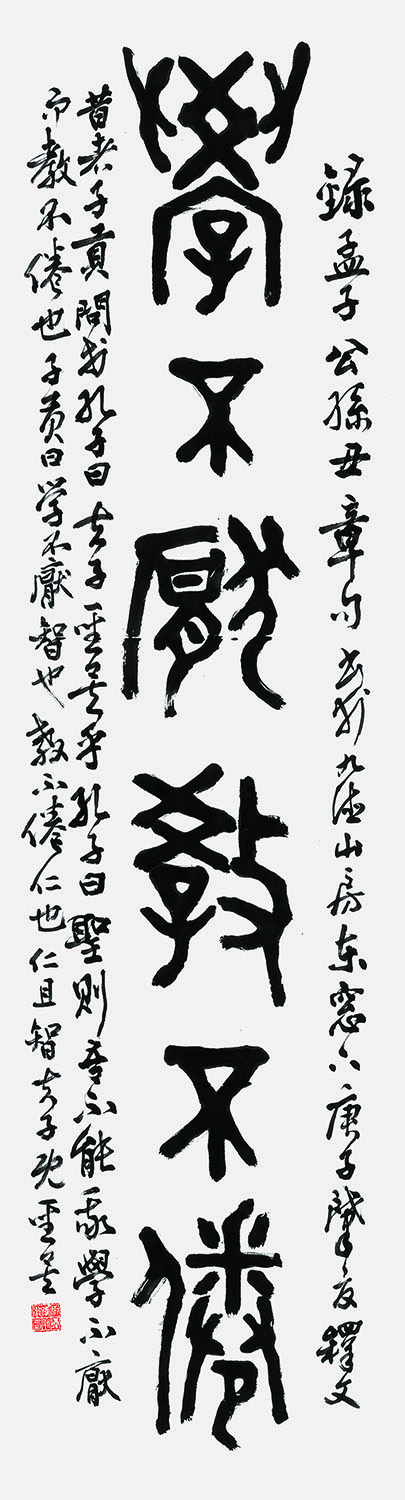 學不厭教不倦
錄孟子公孫丑章句書於九德山房東窓下庚子肇夏釋文
昔者子貢問於孔子曰夫子聖矣乎孔子曰聖則吾不能我學不厭
而教不倦也子貢曰学不厭智也教不倦仁也仁且智夫子既聖矣